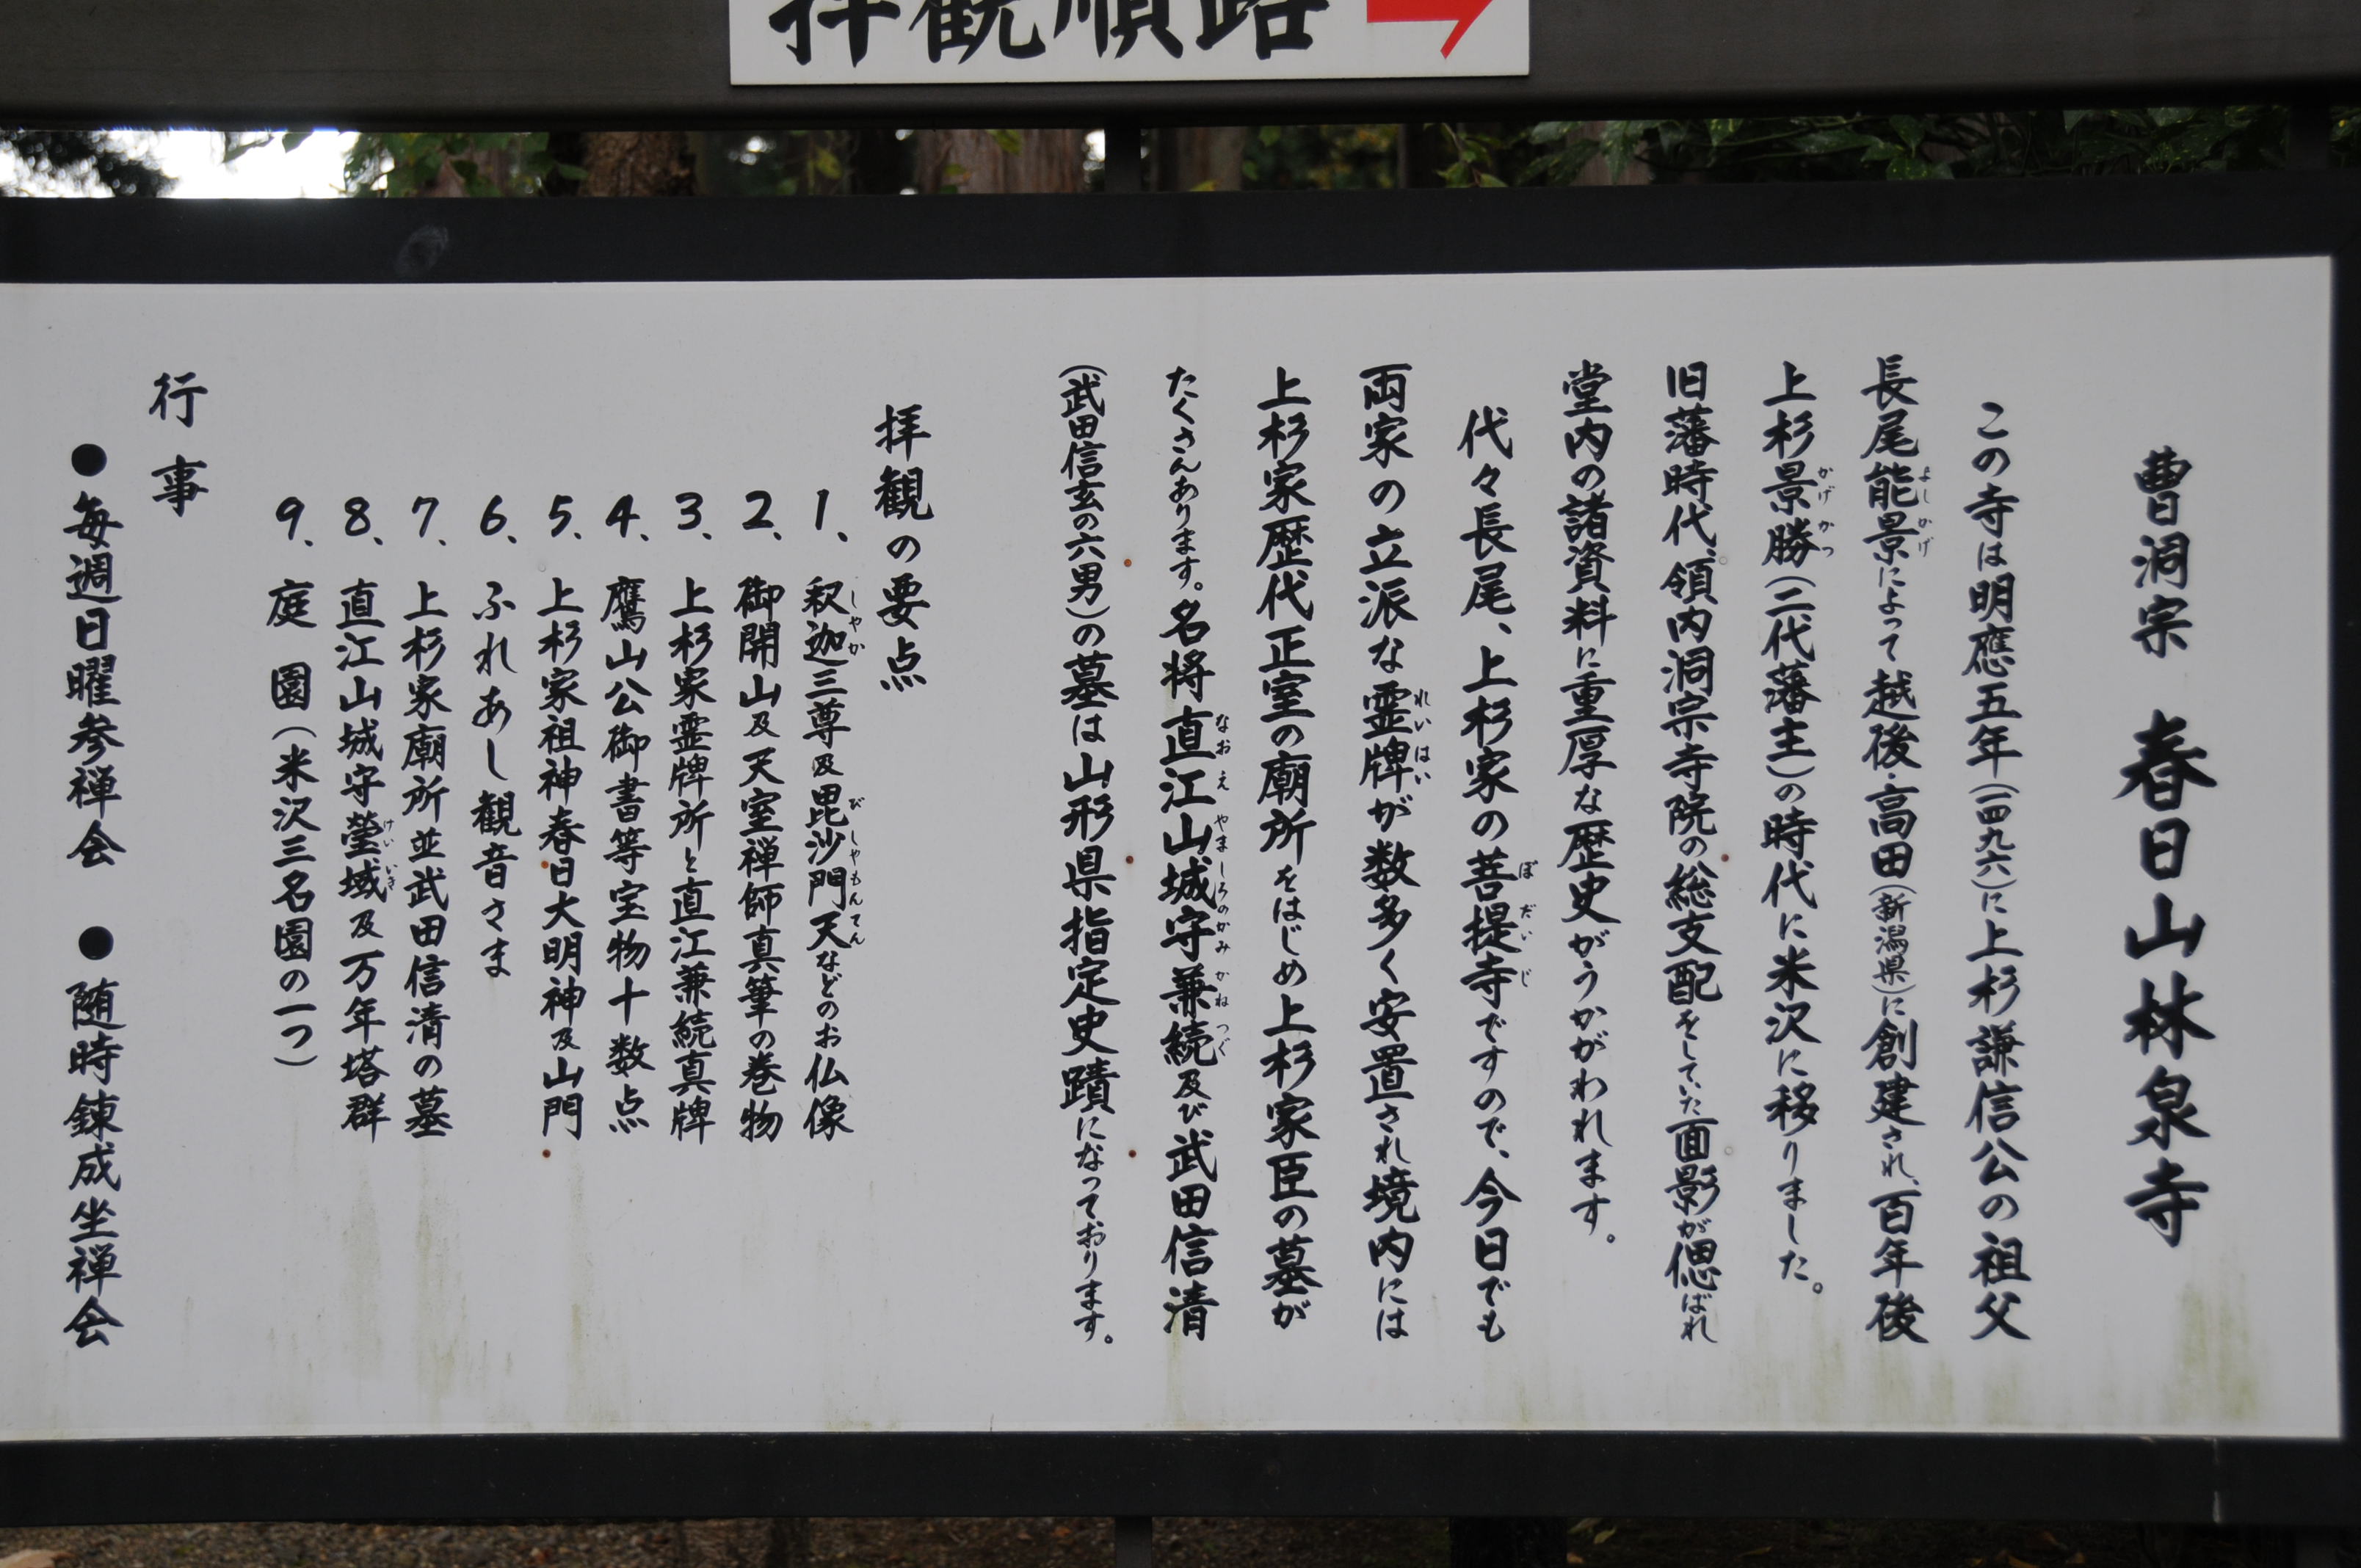 拝観順路
曹洞宗 春日山林泉寺
この寺は明應五年(一四九六)に上杉謙信公の祖父
長尾能景によって越後・高田(新潟県)に創建され、百年後
上杉景勝(二代藩主)の時代に米沢に移りました。
旧藩時代、領内洞宗寺院の総支配をしていた面影が偲ばれ
堂内の諸資料に重厚な歴史がうかがわれます。
代々長尾、上杉家の菩提寺ですので、今日でも
両家の立派な霊牌が数多く安置され境内には
上杉家歴代正室の廟所をはじめ上杉家臣の墓が
たくさんあります。名将直江山城守兼続及び武田信清
(武田信玄の六男)の墓は山形県指定史蹟になっております。
拝観の要点
1、釈迦三尊及毘沙門天などのお仏像
2、御開山及天室禅師真筆の巻物
3、上杉家霊牌所と直江兼続真牌
4、鷹山公御書等宝物十数点
5、上杉家祖神春日大明神及山門
6、ふれあし観音さま
7、上杉家廟所並武田信清の墓
8、直江山城守塋域及万年塔群
9、庭園(米沢三名園の一つ)
行事
●毎週日曜参禅会 ●随時錬成坐禅会